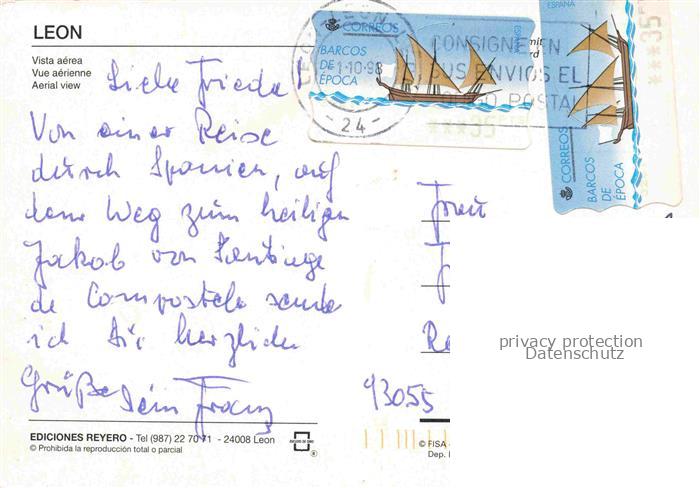 LEON
Vista aérea
Vue aérienne
Aerial view
Liebe Frieda!
Von einer Reise
durch Spanien, auf
dem Weg zum heiligen
Jakob von Santiago
de Compostela sende
ich Dir herzliche
Grüße Dein Franz
EDICIONES REYERO - Tel (987) 22 70 71 - 24008 Leon
© Prohibida la reproducción total o parcial
CORREOS
ESPAÑA
BARCOS
DE
ÉPOCA
***35
LEON
1-10-98
- 24 -
CONSIGNE EN
SUS ENVIOS EL
POSTAL
ESPAÑA
***35
CORREOS
BARCOS
DE
ÉPOCA
Frau
93055
privacy protection
Datenschutz
© FISA
Dep.